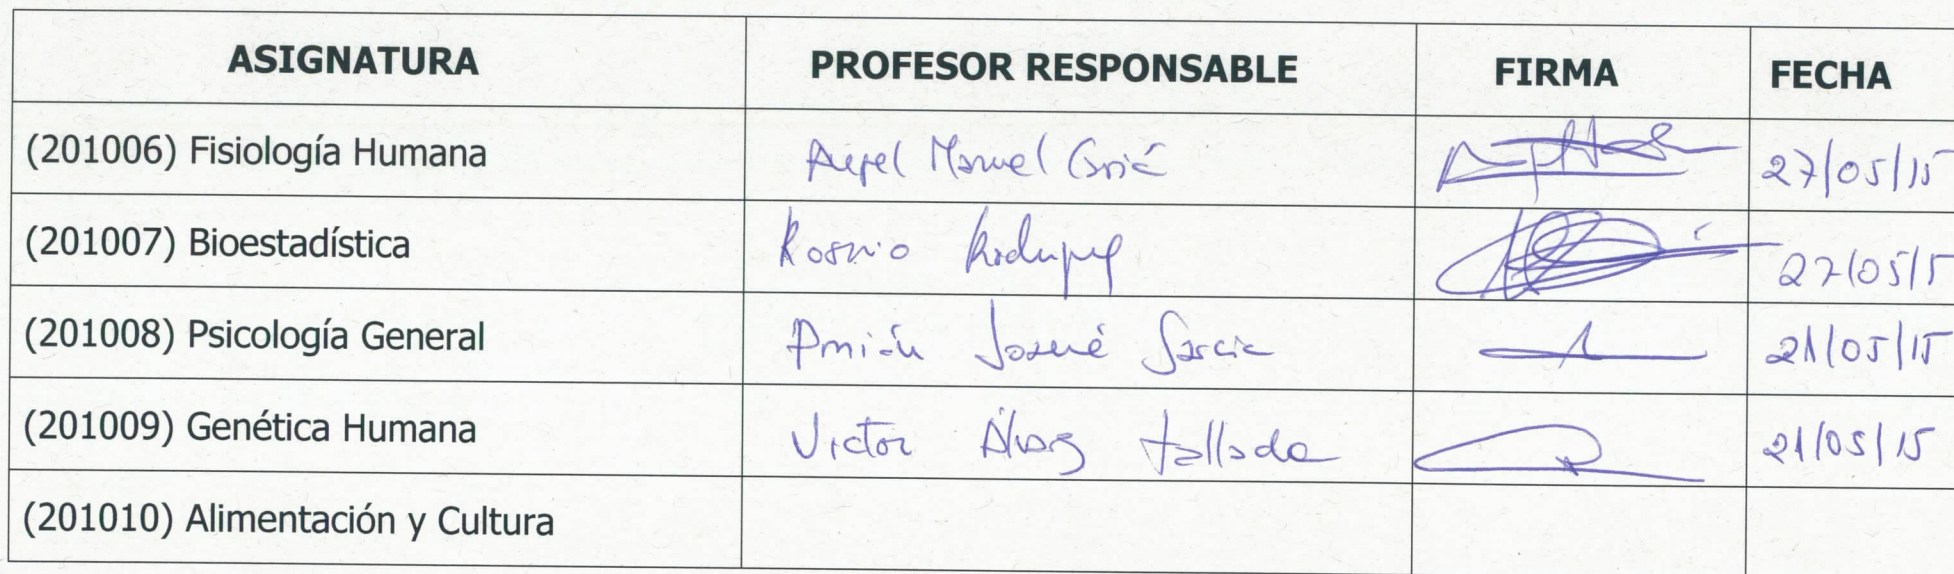 ASIGNATURA PROFESOR RESPONSABLE FIRMA FECHA
(201006) Fisiología Humana Angel Manuel 27/05/15
(201007) Bioestadística Rosario Rodríguez 27/05/15
(201008) Psicología General Josué García 21/05/15
(201009) Genética Humana Victor Álvarez Tallada 21/05/15
(201010) Alimentación y Cultura